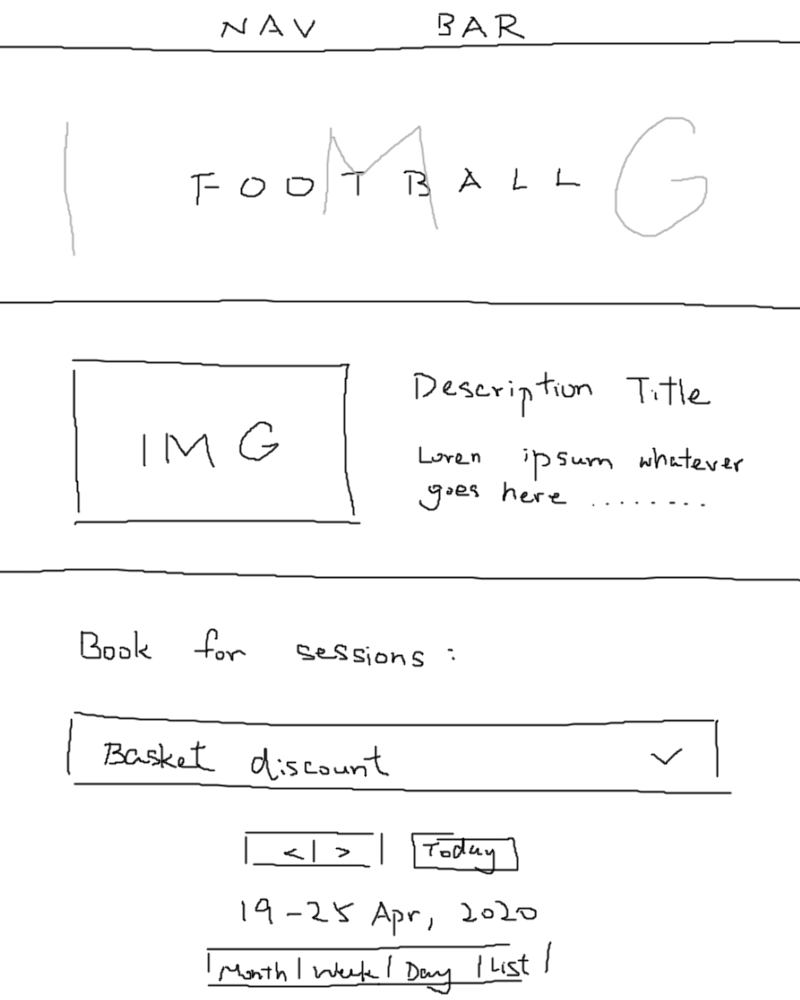 NAV BAR
IMG
FOOTBALL
IMG
Description Title
Loren ipsum whatever
goes here ........
Book for sessions :
Basket discount
< | > Today
19-25 Apr, 2020
Month | Week | Day | List